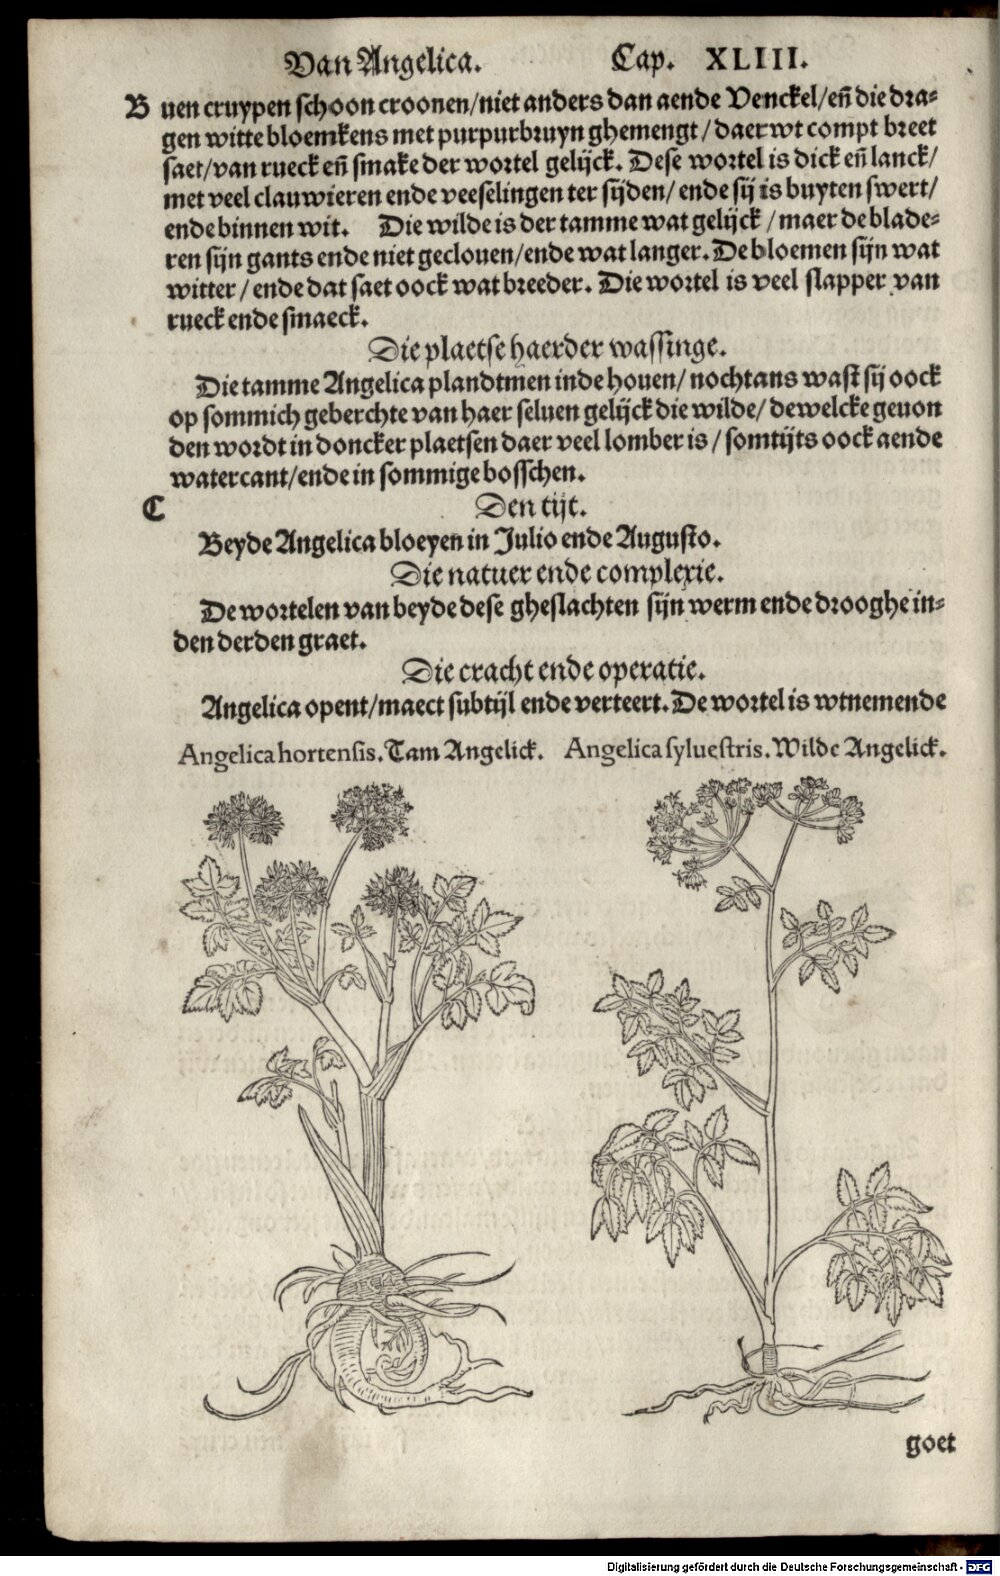 Van Angelica. Cap. XLIII.
B uen cruypen schoon croonen/niet anders dan aende Venckel/eñ die dra-
gen witte bloemkens met purpurbruyn ghemengt/daer wt compt breet
saet/van rueck eñ smake der wortel gelijck. Dese wortel is dick eñ lanck/
met veel clauwieren ende veeselingen ter sijden/ende sij is buyten swert/
ende binnen wit. Die wilde is der tamme wat gelijck/maer de blade-
ren sijn gants ende niet geclouen/ende wat langer. De bloemen sijn wat
witter/ende dat saet oock wat breeder. Die wortel is veel slapper van
rueck ende smaeck.
Die plaetse haerder wassinge.
Die tamme Angelica plandtmen inde houen/nochtans wast sij oock
op sommich geberchte van haer seluen gelijck die wilde/dewelcke geuon
den wordt in doncker plaetsen daer veel lomber is/somtijts oock aende
watercant/ende in sommige bosschen.
C Den tijt.
Beyde Angelica bloeyen in Julio ende Augusto.
Die natuer ende complexie.
De wortelen van beyde dese gheslachten sijn werm ende drooghe in-
den derden graet.
Die cracht ende operatie.
Angelica opent/maect subtijl ende verteert. De wortel is wtnemende
Angelica hortensis. Tam Angelick. Angelica syluestris. Wilde Angelick.
goet
Digitalisierung gefördert durch die Deutsche Forschungsgemeinschaft - DFG